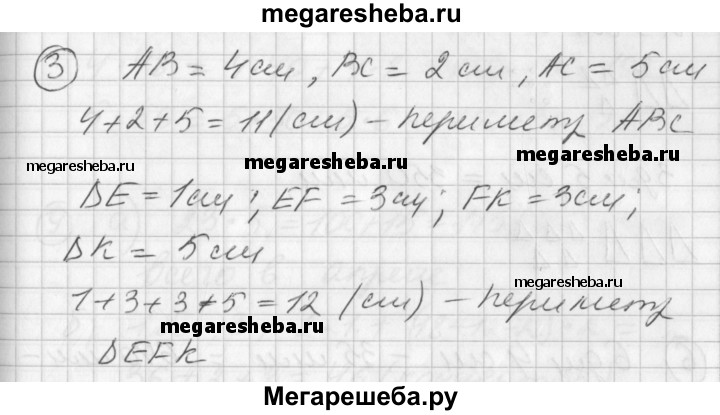 megaresheba.ru
③ AB = 4 см, BC = 2 см, AC = 5 см
4 + 2 + 5 = 11 (см) – периметр ABC
megaresheba.ru megaresheba.ru megaresheba.ru
DE = 1 см; EF = 3 см; FK = 3 см;
DK = 5 см
megaresheba.ru
1 + 3 + 3 + 5 = 12 (см) – периметр
megaresheba.ru
DEFK
Мегарешеба.ру